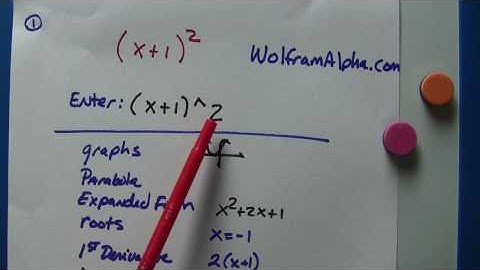 1
(x+1)²
WolframAlpha.com
Enter: (x+1)^2
graphs
Parabola
Expanded Form x²+2x+1
roots x=-1
1st Derivative 2(x+1)